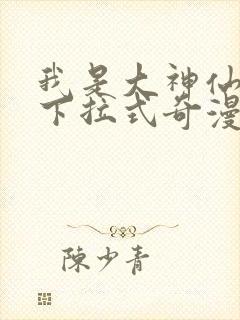 我是大神仙
下拉式奇漫
陳少青